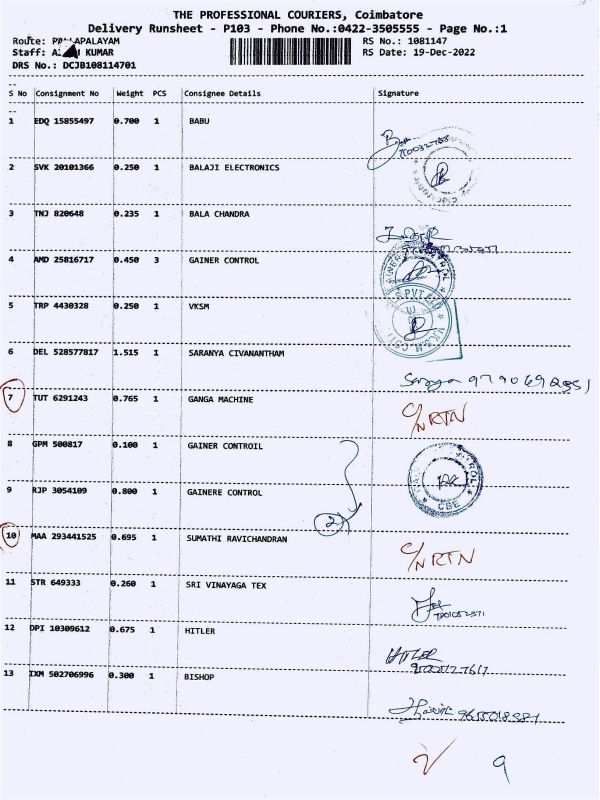 THE PROFESSIONAL COURIERS, Coimbatore
Delivery Runsheet - P103 - Phone No.:0422-3505555 - Page No.:1
Route: RS No.: 1081147
Staff: KUMAR RS Date: 19-Dec-2022
DRS No.: DCJB108114701
S No Consignment No Weight PCS Consignee Details Signature
1 EDQ 15855497 0.700 1 BABU
2 SVK 20101366 0.250 1 BALAJI ELECTRONICS
3 TNJ 820648 0.235 1 BALA CHANDRA
4 AMD 25816717 0.450 3 GAINER CONTROL
5 TRP 4430328 0.250 1 VKSM
6 DEL 528577817 1.515 1 SARANYA CIVANANTHAM
7 TUT 6291243 0.765 1 GANGA MACHINE C/N RTN
8 GPM 500817 0.100 1 GAINER CONTROIL
9 RJP 3054109 0.800 1 GAINERE CONTROL
2
CBE
10 MAA 293441525 0.695 1 SUMATHI RAVICHANDRAN C/N RTN
11 STR 649333 0.260 1 SRI VINAYAGA TEX
12 DPI 10309612 0.675 1 HITLER HITLER
13 IXM 502706996 0.300 1 BISHOP
2 9